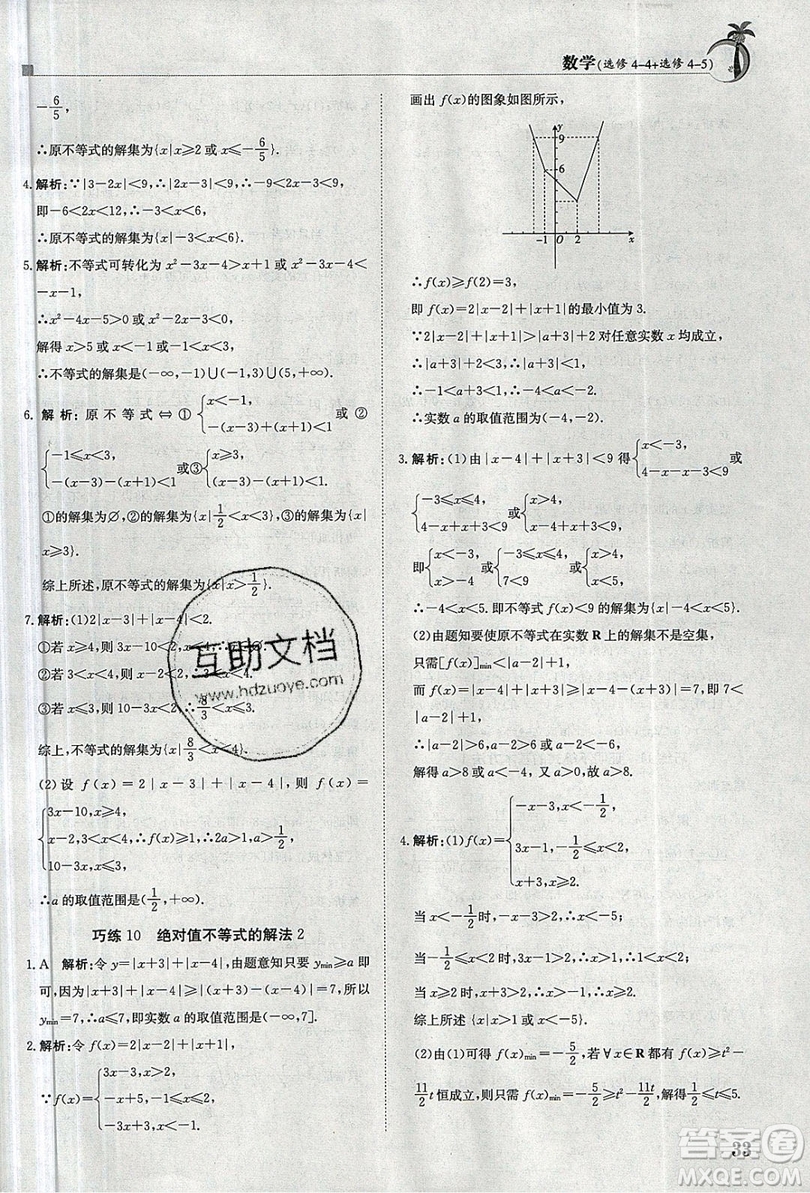 数学(选修4-4+选修4-5)
-6/5,
∴原不等式的解集为{x|x≥2或x≤-6/5}.
4.解析:∵|3-2x|<9,∴|2x-3|<9,∴-9<2x-3<9,
即-6<2x<12,∴-3<x<6.
∴原不等式的解集为{x|-3<x<6}.
5.解析:不等式可转化为x²-3x-4>x+1或x²-3x-4<
-x-1,
∴x²-4x-5>0或x²-2x-3<0,
解得x>5或x<-1或-1<x<3,
∴不等式的解集是(-∞,-1)∪(-1,3)∪(5,+∞).
6.解析:原不等式⇔①{x<-1, -(x-3)+(x+1)<1 或②
{-1≤x<3, -(x-3)-(x+1)<1 或③{x≥3, (x-3)-(x+1)<1.
①的解集为∅,②的解集为{x|1/2<x<3},③的解集为{x|
x≥3}.
综上所述,原不等式的解集为{x|x>1/2}.
7.解析:(1)2|x-3|+|x-4|<2,
①若x≥4,则3x-10<2,x<4,∴舍去∅.
②若3<x<4,则x-2<2,∴3<x<4.
③若x≤3,则10-3x<2,∴8/3<x≤3.
综上,不等式的解集为{x|8/3<x<4}.
(2)设f(x)=2|x-3|+|x-4|,则f(x)=
{3x-10,x≥4, x-2,3<x<4, 10-3x,x≤3, ∴f(x)≥1,∴2a>1,a>1/2,
∴a的取值范围为(1/2,+∞).
巧练10 绝对值不等式的解法2
1.A 解析:令y=|x+3|+|x-4|,由题意知只要y_min≥a即
可,因为|x+3|+|x-4|≥|(x+3)-(x-4)|=7,所以
y_min=7,∴a≤7,即实数a的取值范围是(-∞,7].
2.解析:令f(x)=2|x-2|+|x+1|,
∵f(x)={3x-3,x≥2, 5-x,-1<x<2, 3-3x,x≤-1,
画出f(x)的图象如图所示,
y
9
6
-1 O 2 x
∴f(x)≥f(2)=3,
即f(x)=2|x-2|+|x+1|的最小值为3.
∵2|x-2|+|x+1|>|a+3|+2对任意实数x均成立,
∴|a+3|+2<3,∴|a+3|<1,
∴-1<a+3<1,∴-4<a<-2.
∴实数a的取值范围为(-4,-2).
3.解析:(1)由|x-4|+|x+3|<9得{x<-3, 4-x-x-3<9 或
{-3≤x≤4, 4-x+x+3<9 或{x>4, x-4+x+3<9,
即{x<-3, x>-4 或{-3≤x≤4, 7<9 或{x>4, x<5,
∴-4<x<5.即不等式f(x)<9的解集为{x|-4<x<5}.
(2)由题知要使原不等式在实数R上的解集不是空集,
只需[f(x)]min<|a-2|+1,
而f(x)=|x-4|+|x+3|≥|x-4-(x+3)|=7,即7<
|a-2|+1,
∴|a-2|>6,∴a-2>6或a-2<-6,
解得a>8或a<-4,又a>0,所以a>8.
4.解析:(1)f(x)={-x-3,x<-1/2, 3x-1,-1/2≤x<2, x+3,x≥2.
当x<-1/2时,-x-3>2,x<-5,∴x<-5.
当-1/2≤x<2时,3x-1>2,x>1,∴1<x<2.
当x≥2时,x+3>2,x>-1,∴x≥2.
综上所述{x|x>1或x<-5}.
(2)由(1)可得f(x)min=-5/2,若∀x∈R,f(x)≥t²-
11/2t恒成立,则只需f(x)min=-5/2≥t²-11t/2,解得1/2≤t≤5.
互助文档
www.hdzuoye.com
答案圈
MXQE.COM
33